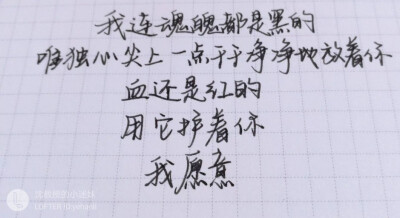 我连魂魄都是黑的
唯独心尖上一点干干净净地放着你
血还是红的
用它护着你
我愿意